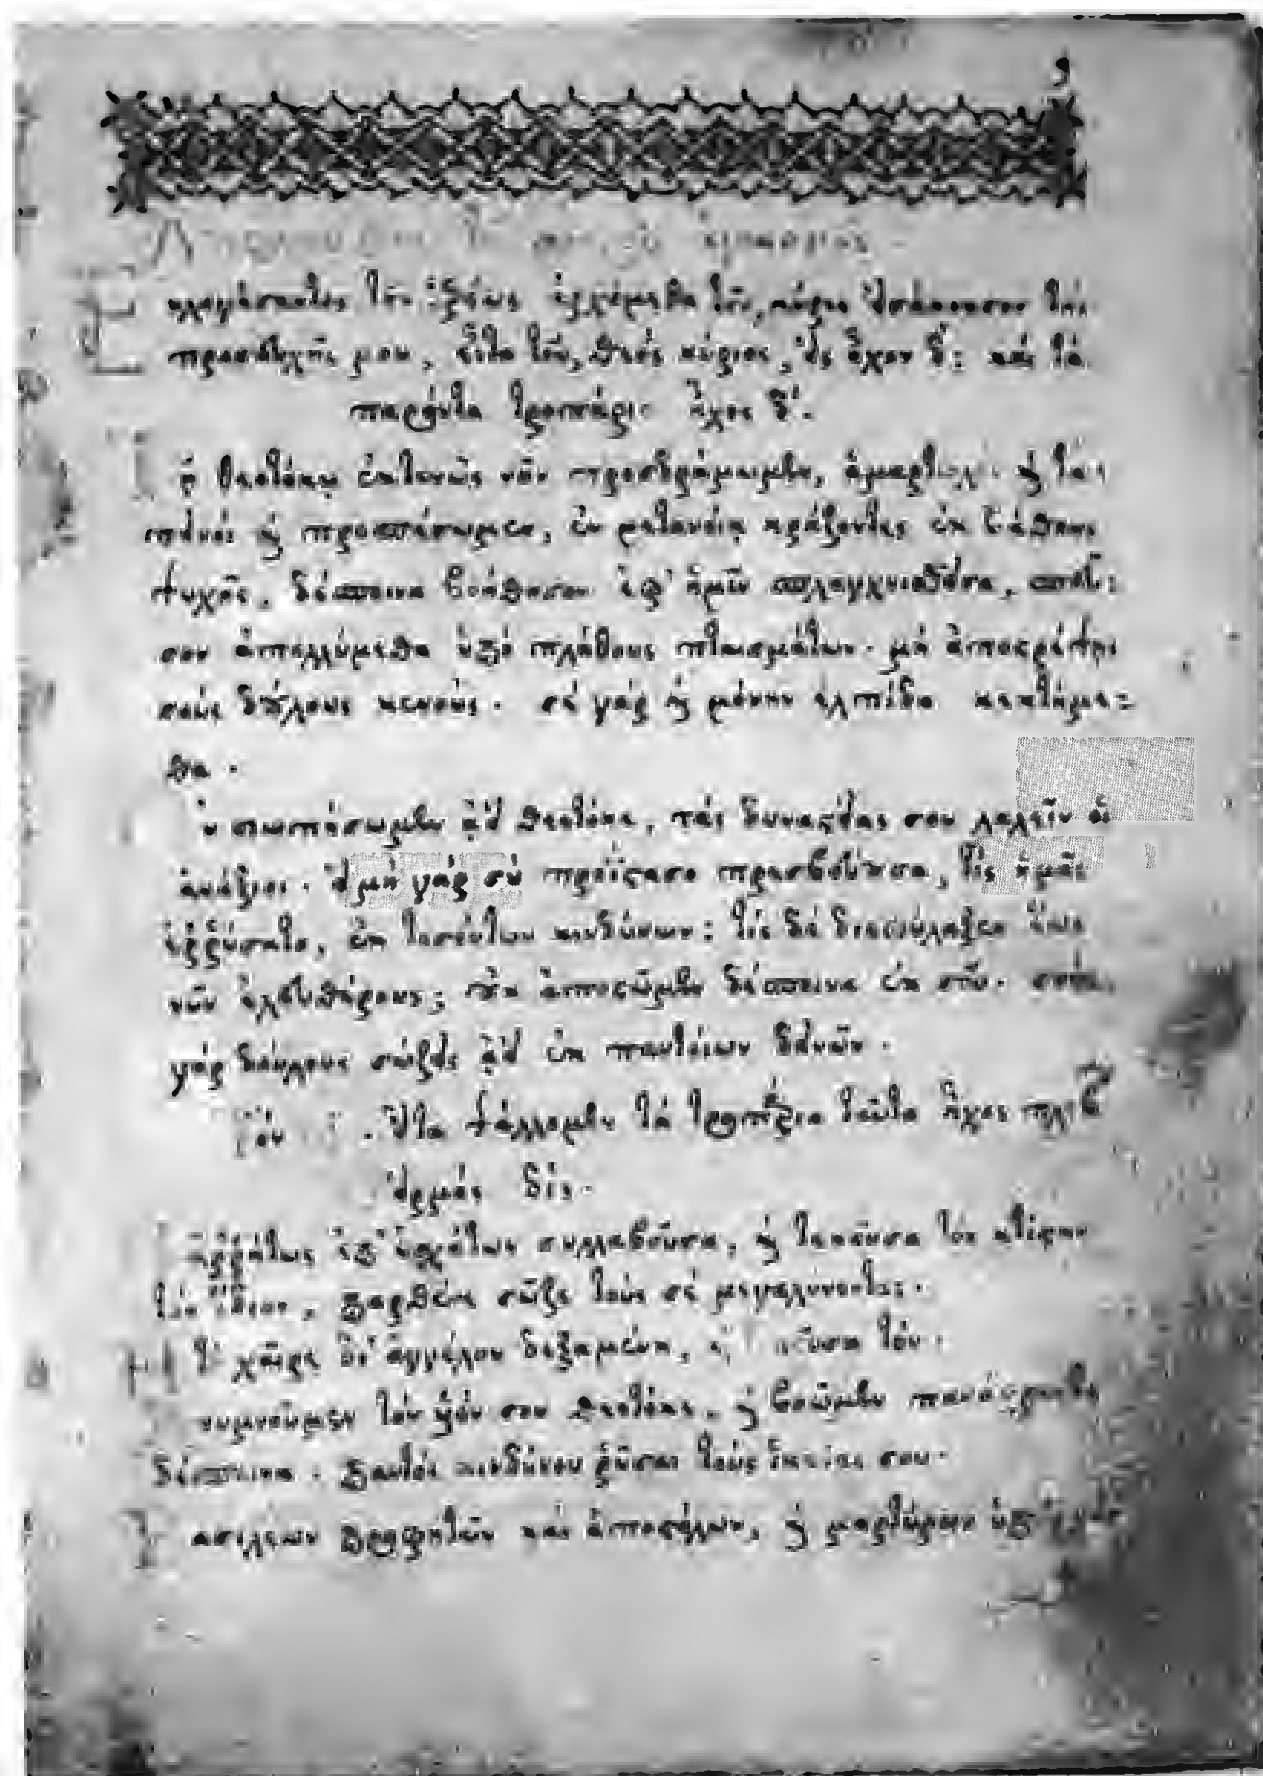 εὐλογήσαντος τοῦ ἱερέως ἀρχόμεθα τοῦ, κύριε εἰσάκουσον τῆς
προσευχῆς μου, εἶτα τοῦ, θεὸς κύριος, εἰς ἦχον δ: καὶ τὰ
παρόντα τροπάρι ἦχος δ.
ῇ θεοτόκῳ ἐκτενῶς νῦν προσδράμωμεν, ἁμαρτωλοὶ καὶ τα
πεινοὶ καὶ προσπέσωμεν, ἐν μετανοίᾳ κράζοντες ἐκ βάθους
ψυχῆς, δέσποινα βοήθησον ἐφ' ἡμῖν σπλαγχνισθεῖσα, σπεῦ:
σον ἀπολλύμεθα ὑπὸ πλήθους πταισμάτων. μὴ ἀποστρέψῃς
σοὺς δούλους κενούς. σὲ γὰρ καὶ μόνην ἐλπίδα κεκτήμε=
θα.
ὐ σιωπήσωμεν ἀεὶ θεοτόκε, τὰς δυναστείας σου λαλεῖν οἱ
ἀνάξιοι. εἰμὴ γὰρ σὺ προΐστασο πρεσβεύουσα, τίς ἡμᾶς
ἐῤῥύσατο, ἐκ τοσούτων κινδύνων: τίς δὲ διεφύλαξεν ἕως
νῦν ἐλευθέρους; οὐκ ἀποστῶμεν δέσποινα ἐκ σοῦ. σοὺς
γὰρ δούλους σώζεις ἀεὶ ἐκ παντοίων δεινῶν.
εἶτα ψάλλομεν τὰ τροπάρια ταῦτα ἦχος πλ β
εἱρμὸς δίς.
ἀῤῥήτως ἐπ' ἐσχάτων συλλαβοῦσα, καὶ τεκοῦσα τὸν κτίστην
τὸν ἴδιον, παρθένε σῶζε τοὺς σὲ μεγαλύνοντας.
τὸ χαῖρε δι' ἀγγέλου δεξαμένη, καὶ τεκοῦσα τὸν
νυμνοῦμεν τὸν υἱόν σου θεοτόκε, καὶ βοῶμεν πανάχραντε
δέσποινα. παντὸς κινδύνου ῥῦσαι τοὺς οἰκέτας σου.
ασιλέων προφητῶν καὶ ἀποστόλων, καὶ μαρτύρων ὑπάρχεις